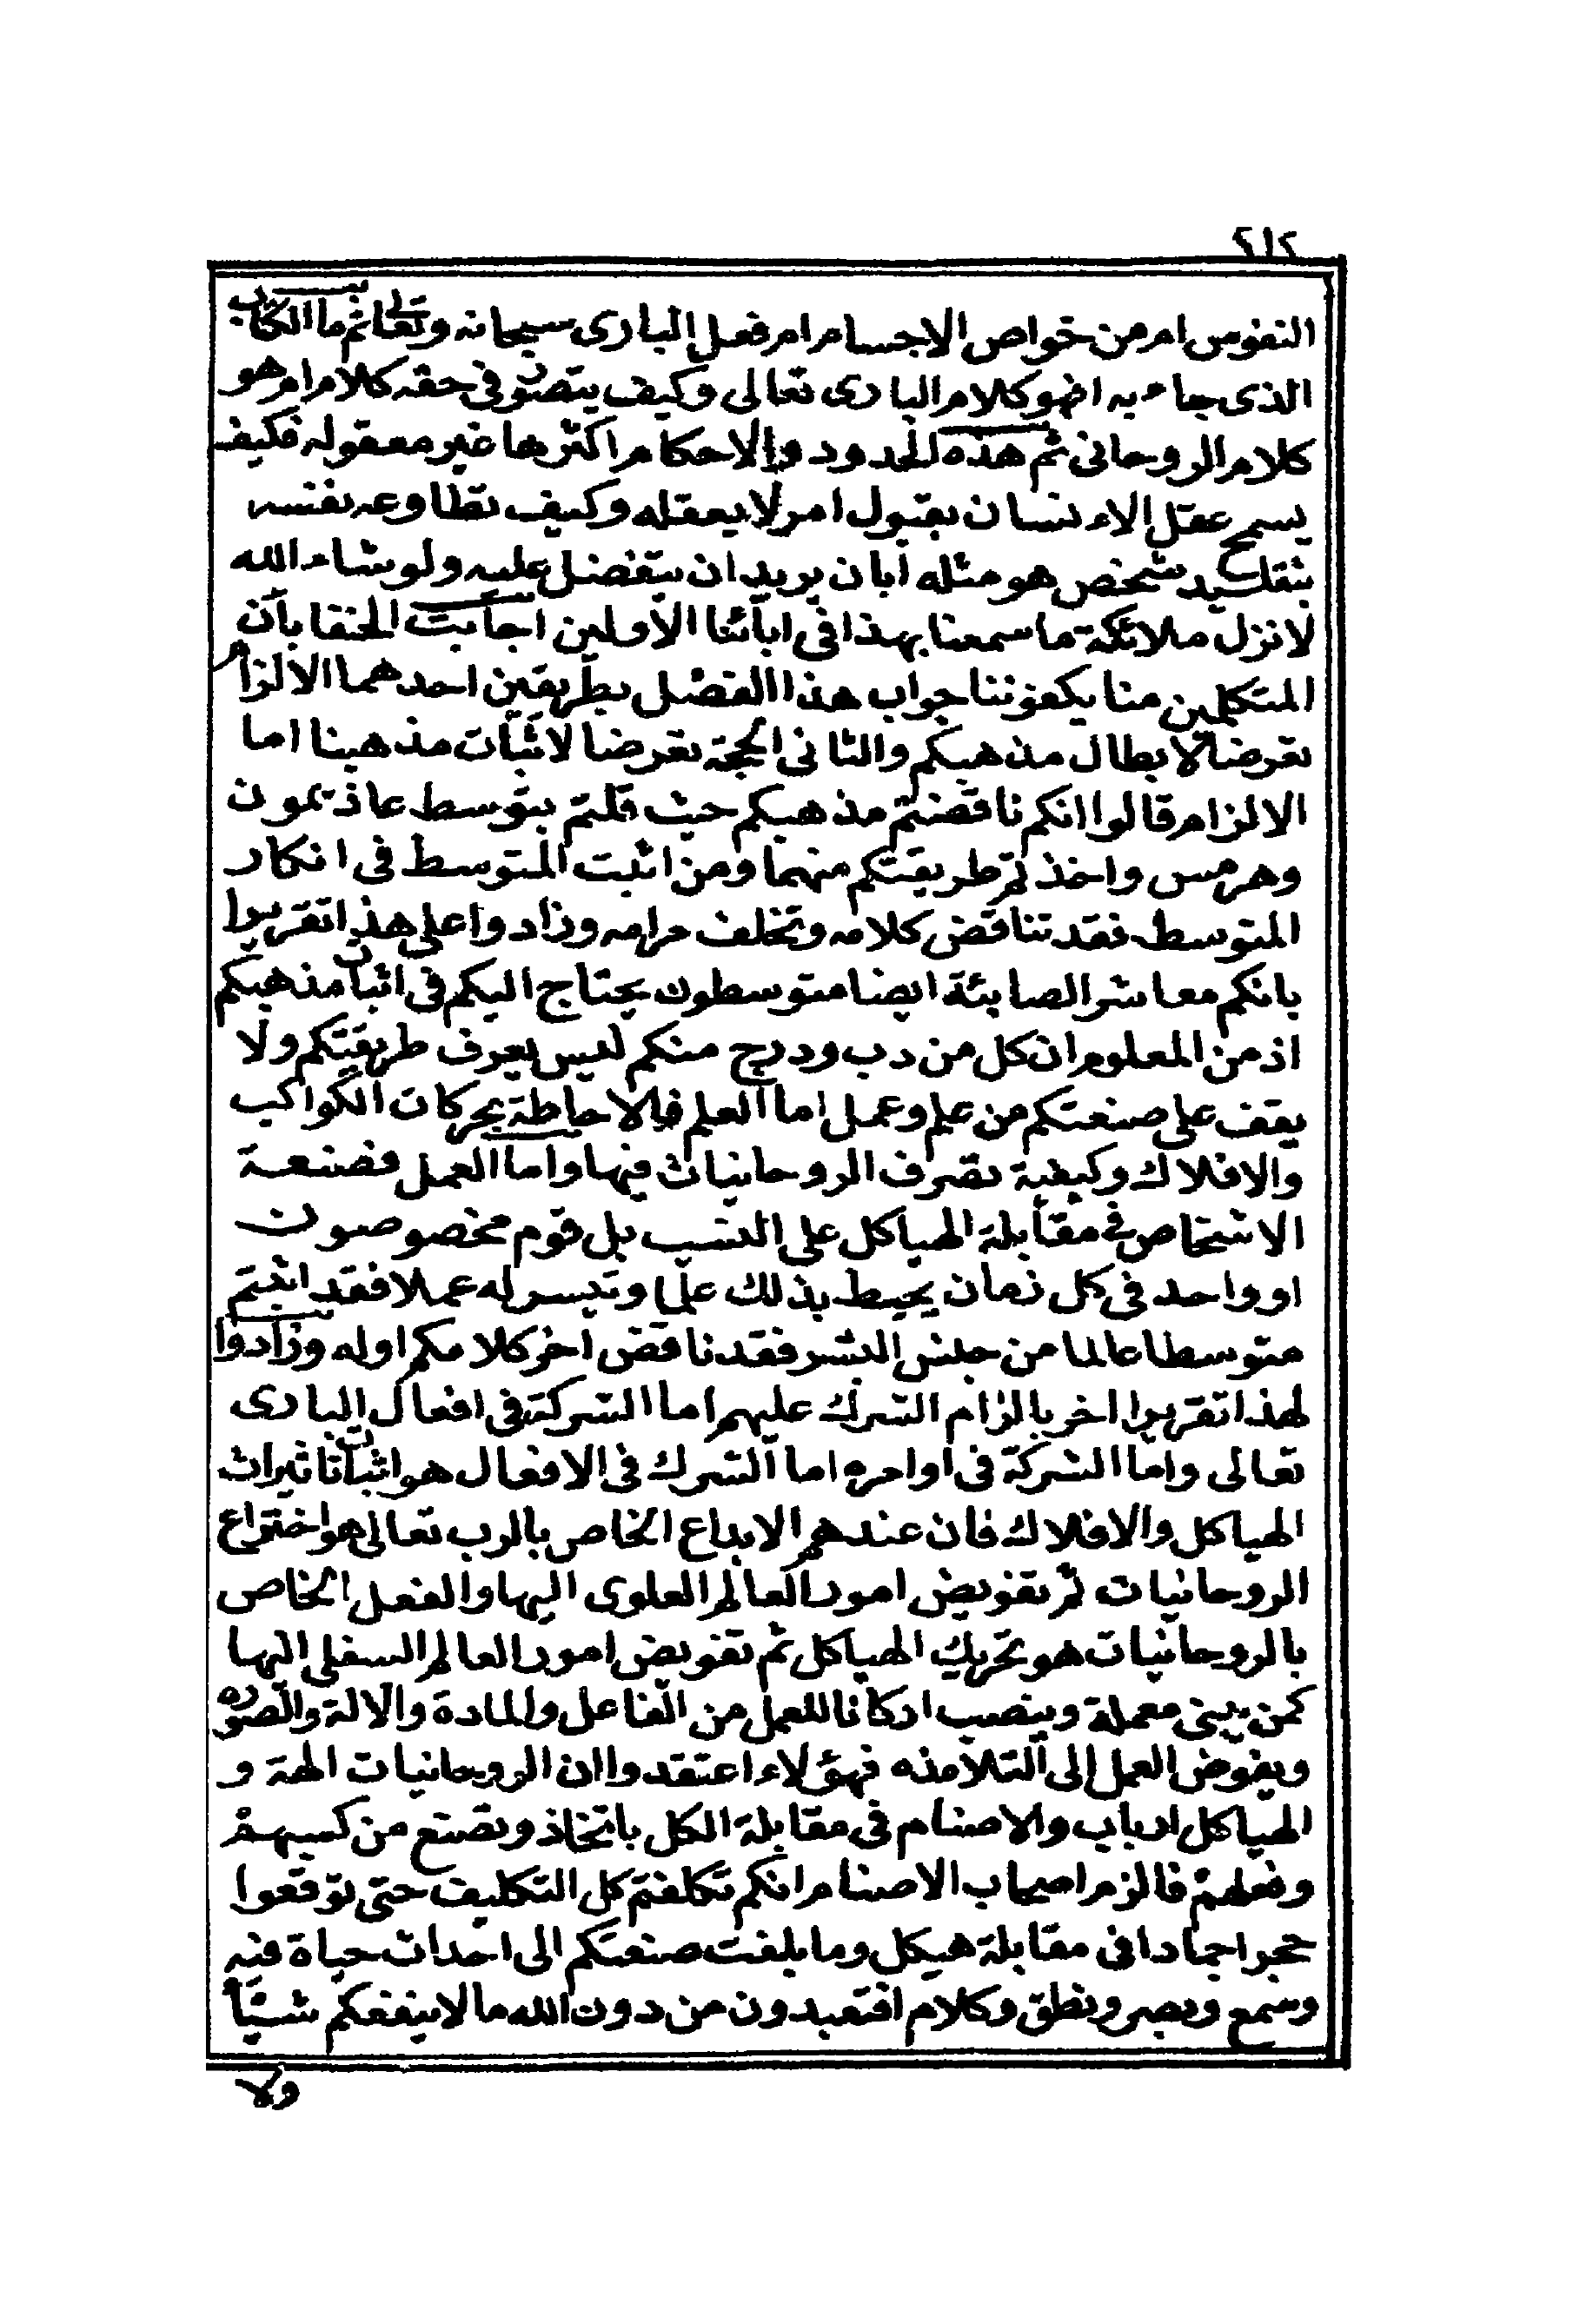 ٢١٢
النفوس ام من خواص الاجسام ام فعل البارى سبحانه وتعالى ثم ما الكتاب
الذى جاء به افهو كلام البارى تعالى وكيف يتصور فى حقه كلام ام هو
كلام الروحانى ثم هذه الحدود والاحكام اكثرها غير معقوله فكيف
يسمح عقل الاءنسان بقبول امر لا يعقله وكيف تطاوعه نفسه
بتقليد شخص هو مثله أبان يريد ان يتفضل عليه ولو شاء الله
لانزل ملائكة ما سمعنا بهذا فى ابآئنا الأولين اجابت الحنفا بأن
المتكلمين منا يكفوننا جواب هذا الفصل بطريقين احدهما الالزام
تعرضا لابطال مذهبكم والثانى الحجة تعرضا لاثبات مذهبنا اما
الالزام قالوا انكم ناقضتم مذهبكم حيث قلتم بتوسط عاذيمون
وهرمس واخذتم طريقتكم منهما ومن اثبت المتوسط فى انكار
المتوسط فقد تناقض كلامه وتخلف مرامه وزادوا على هذا تقريرا
بانكم معاشر الصابئة ايضا متوسطون يحتاج اليكم فى اثبات مذهبكم
اذ من المعلوم ان كل من دب ودرج منكم ليس يعرف طريقتكم ولا
يقف على صنعتكم من علم وعمل اما العلم فالاحاطة بحركات الكواكب
والافلاك وكيفية تصرف الروحانيات فيها واما العمل فصنعة
الاشخاص فى مقابلة الهياكل على النسب بل قوم مخصوصون
او واحد فى كل زمان يحيط بذلك علما وتيسر له عملا فقد اثبتم
متوسطا عالما من جنس البشر فقد ناقض اخر كلامكم اوله وزادوا
لهذا تقريرا اخر بالزام الشرك عليهم اما الشركة فى افعال البارى
تعالى واما الشركة فى اوامره اما الشرك فى الافعال هو اثبات تاثيرات
الهياكل والافلاك فان عندهم الابداع الخاص بالرب تعالى هو اختراع
الروحانيات ثم تفويض امور العالم العلوى اليها والفعل الخاص
بالروحانيات هو تحريك الهياكل ثم تفويض امور العالم السفلى اليها
كمن يبنى معملة وينصب اركانا للعمل من الفاعل والمادة والالة والصوره
ويفوض العمل الى التلامذه فهؤلاء اعتقدوا ان الروحانيات الهة و
الهياكل ارباب والاصنام فى مقابلة الكل باتخاذ وتصنع من كسبهم
وفعلهم فالزم اصحاب الاصنام انكم تكلفتم كل التكليف حتى توقعوا
حجرا جمادا فى مقابلة هيكل وما بلغت صنعتكم الى احداث حياة فيه
وسمع وبصر ونطق وكلام افتعبدون من دون الله ما لا ينفعكم شيئا
ولا